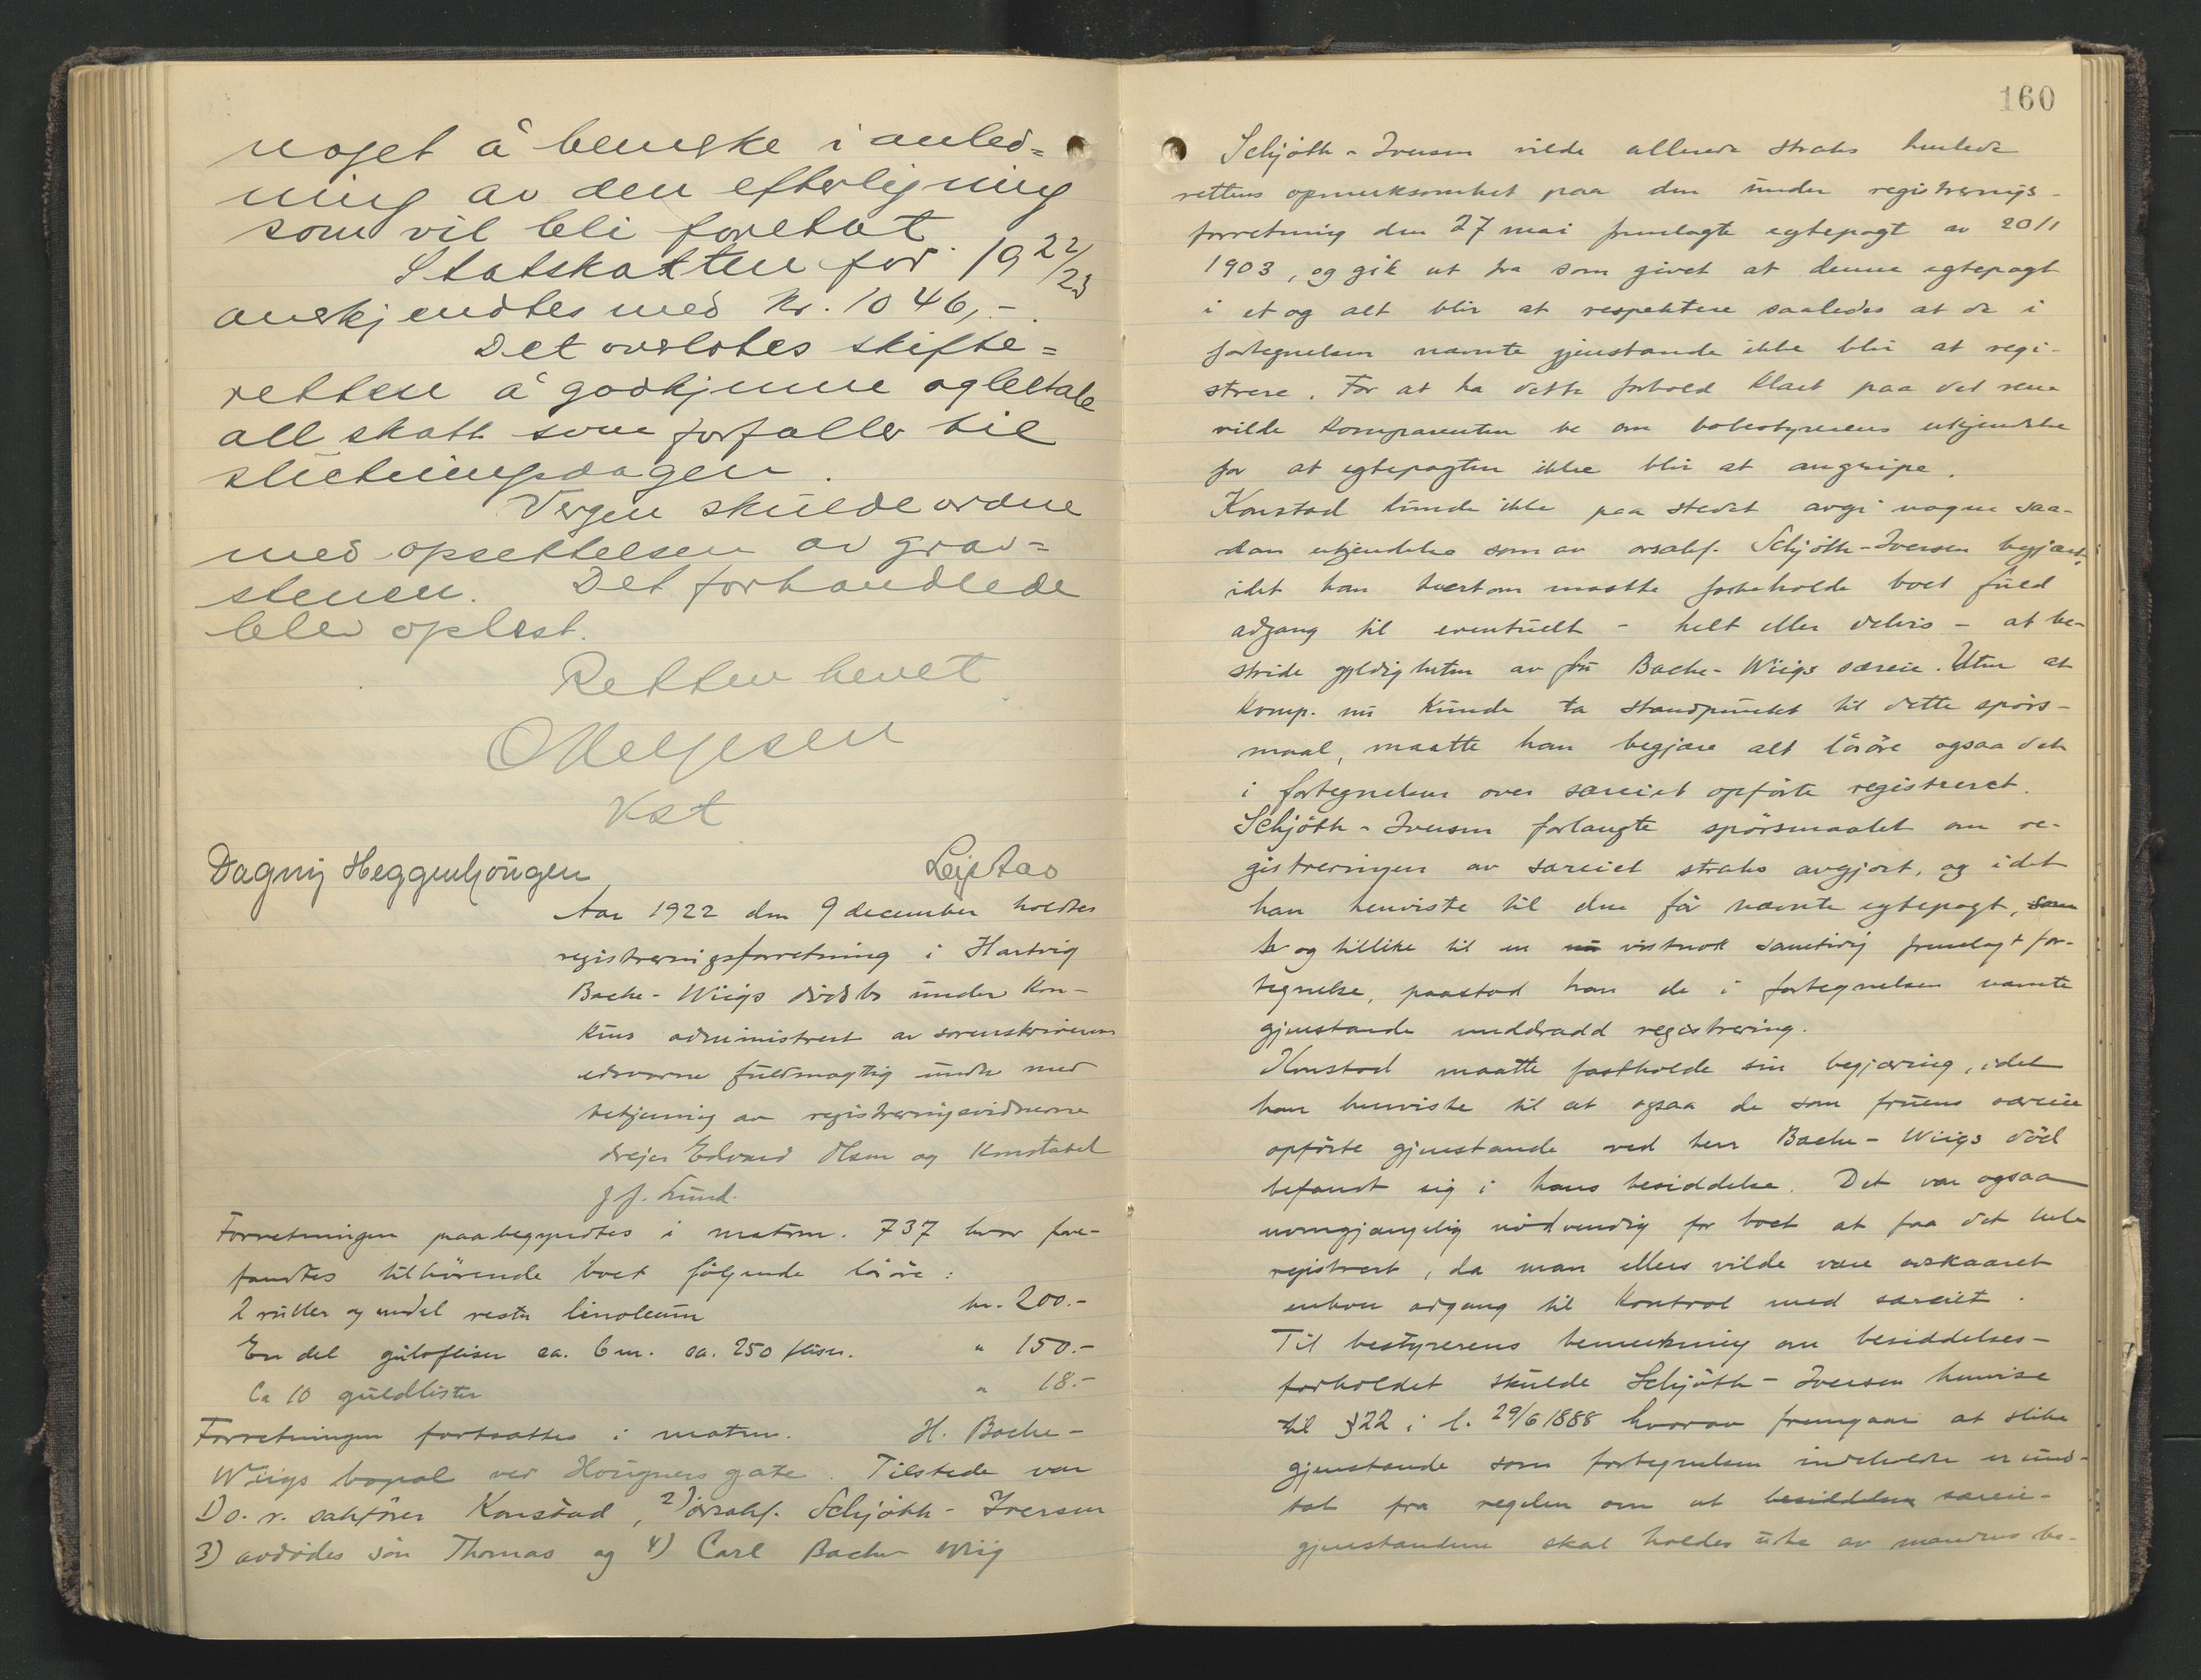 noget å bemerke i anled=
ning av den efterligning
som vil bli foretat.
Statskatten for 1922/23
anerkjendtes med Kr. 1046,-.
Det overlotes skifte=
retten å godkjenne og betale
all skatt som forfaller til
slutningsdagen.
Vergen skulde ordne
med opsettelsen av grav=
stenen. Det forhandlede
blev oplest.
Retten hevet
O Helgesen
Kst
Dagny Heggenhougen
Leif Aas
Aar 1922 den 9 december holdtes
registreringsforretning i Hartvig
Bache-Wiigs dødsbo under kon-
kurs administrert av sorenskriverens
edsvorne fuldmægtig under med
betjening av registreringsvidnerne
dreier Edvard Olsen og Konstabel
J. J. Lund.
Forretningen paabegyndtes i matrnr. 737 hvor fore-
fandtes tilhørende boet følgende løsøre:
2 ruller og endel rester linoleum kr. 200.-
En del gulvfliser ca. 6 m. ca. 250 fliser. " 150.-
Ca 10 guldlister " 18.-
Forretningen fortsattes i matrnr. H. Bache-
Wiigs bopæl ved Hougners gate. Tilstede var
1) o.r. sakfører Konstad, 2) orsakf. Schjøth-Iversen
3) avdødes søn Thomas og 4) Carl Bache Wiig
160
Schjøth-Iversen vilde allerede straks henlede
rettens opmerksomhet paa den under registrerings-
forretning den 27 mai fremlagte egtepagt av 20/1
1903, og gik ut fra som givet at denne egtepagt
i et og alt blir at respektere saaledes at de i
fortegnelsen nævnte gjenstande ikke blir at regi-
strere. For at ha dette forhold klart paa det rene
vilde komparenten be om bobestyrerens erkjendelse
for at egtepagten ikke blir at angripe.
Konstad kunde ikke paa stedet avgi nogen saa-
dan erkjendelse som av orsakf. Schjøth-Iversen begjært,
idet han tvertom maatte forbeholde boet fuld
adgang til eventuelt - helt eller delvis - at be-
stride gyldigheten av fru Bache-Wiigs særeie. Uten at
komp. nu kunde ta standpunkt til dette spørs-
maal, maatte han begjære alt løsøre ogsaa det
i fortegnelsen over særeiet opførte registreret.
Schjøth-Iversen forlangte spørsmaalet om re-
gistreringen av særeiet straks avgjort, og idet
han henviste til den før nævnte egtepagt, som
og tillike til en nu vistnok samtidig fremlagt for-
tegnelse, paastod han de i fortegnelsen nævnte
gjenstande unddradd registrering.
Konstad maatte fastholde sin begjæring, idet
han henviste til at ogsaa de som fruens særeie
opførte gjenstande ved herr Bache-Wiigs død
befandt sig i hans besiddelse. Det var ogsaa
uomgjængelig nødvendig for boet at faa det hele
registrert, da man ellers vilde være avskaaret
enhver adgang til kontrol med særeiet.
Til bestyrerens bemerkning om besiddelses-
forholdet skulde Schjøth-Iversen henvise
til §22 i l. 29/6 1888 hvorav fremgaar at slike
gjenstande som fortegnelsen indeholder er und-
tat fra regelen om at besiddelsen særeie-
gjenstandene skal holdes ute av mandens be-